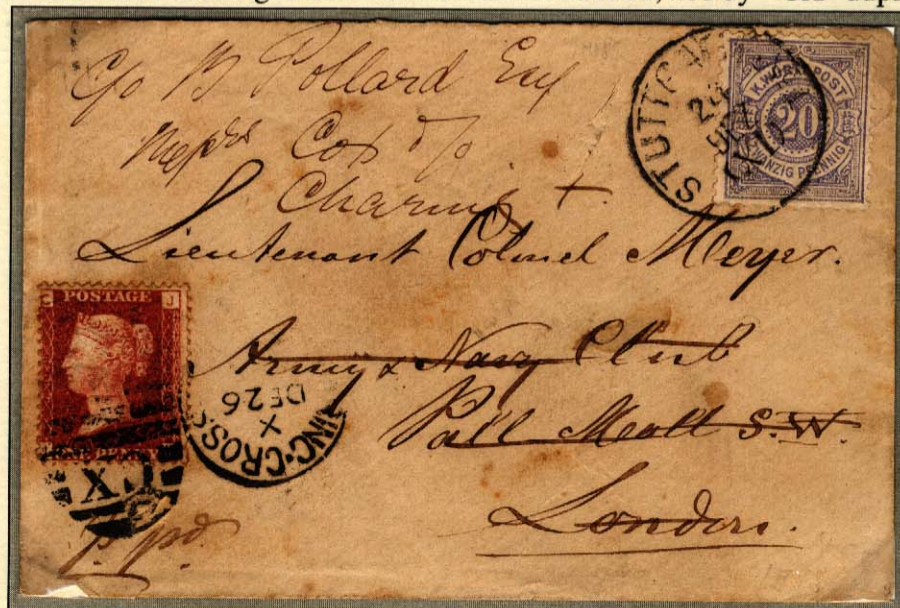 c/o B Pollard Esq
Messrs Cox &
Charing +
Lieutenant Colonel Meyer.
Army & Navy Club
Pall Mall S.W.
London.
p. pd.
K.WÜRTT.POST
20
ZWANZIG PFENNIG
STUTTG
24
POSTAGE
J
CX
ING-CROSS
X
DE 26